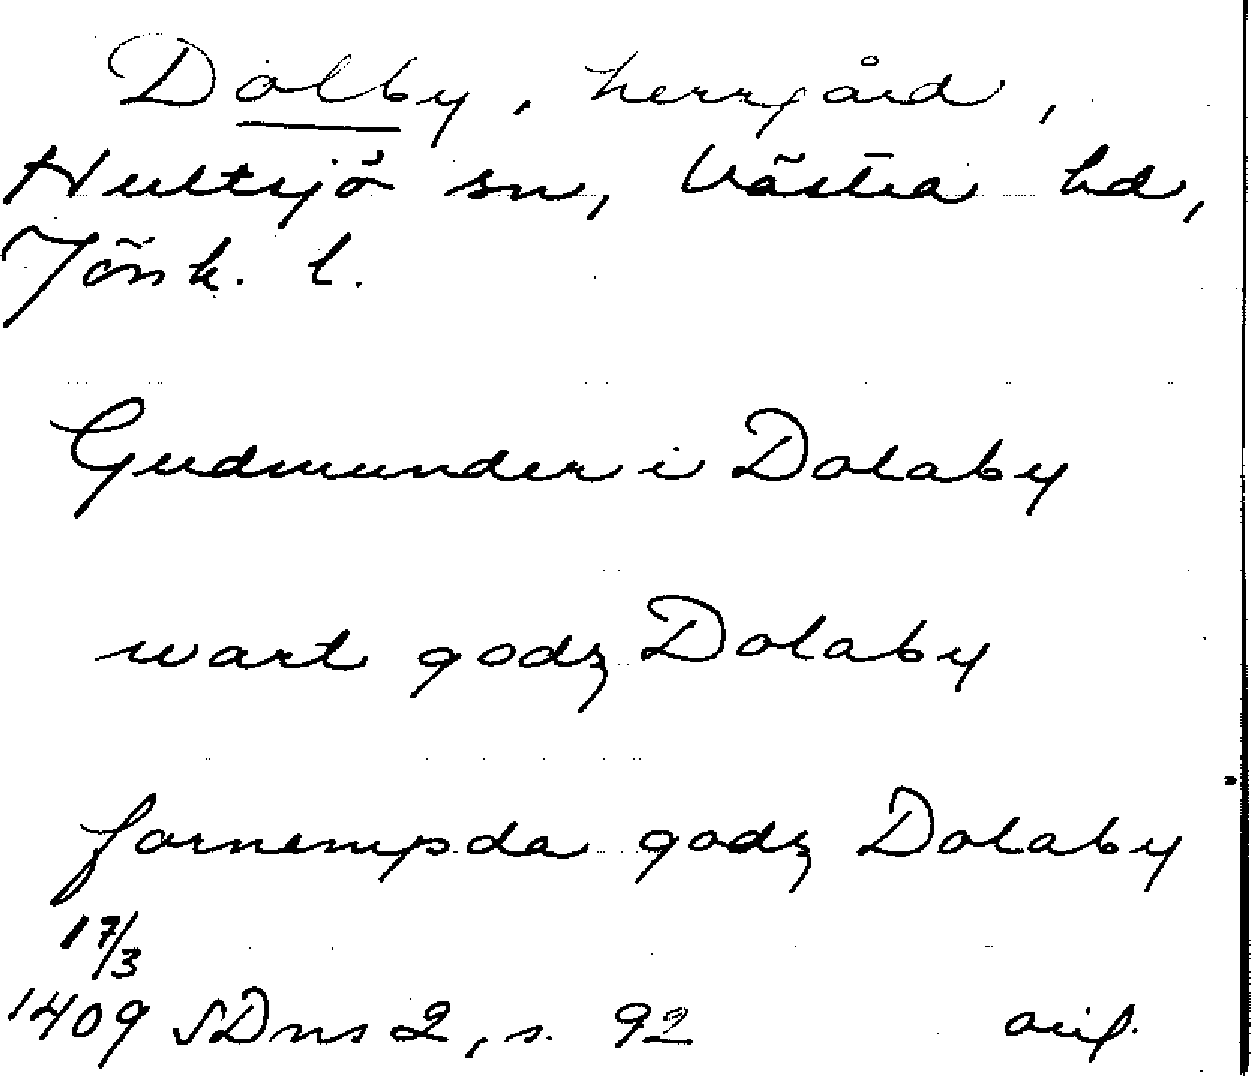 Dolby, herrgård,
Hultsjö sn, Västra hd,
Jönk. l.
Gudmunder i Dolaby
wart godz Dolaby
fornempda godz Dolaby
17/3
1409 SDns 2, s. 92 avskr.